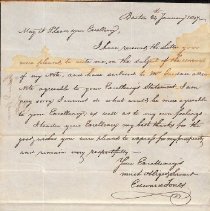 May it Please your Excellency,
I have received the letter you
were pleased to write me, on the subject of the renewal
of my Note, and have
Note agreeable to your Excellency's Statement. I am
very sorry I cannot do what would be more agreeable
to your Excellency, as well as to my own feelings
I tender your Excellency my best thanks for the
good wishes you were pleased to express for my prosperity
and remain very respectfully
Your Excellency's
most obliged servant
Edward Jones